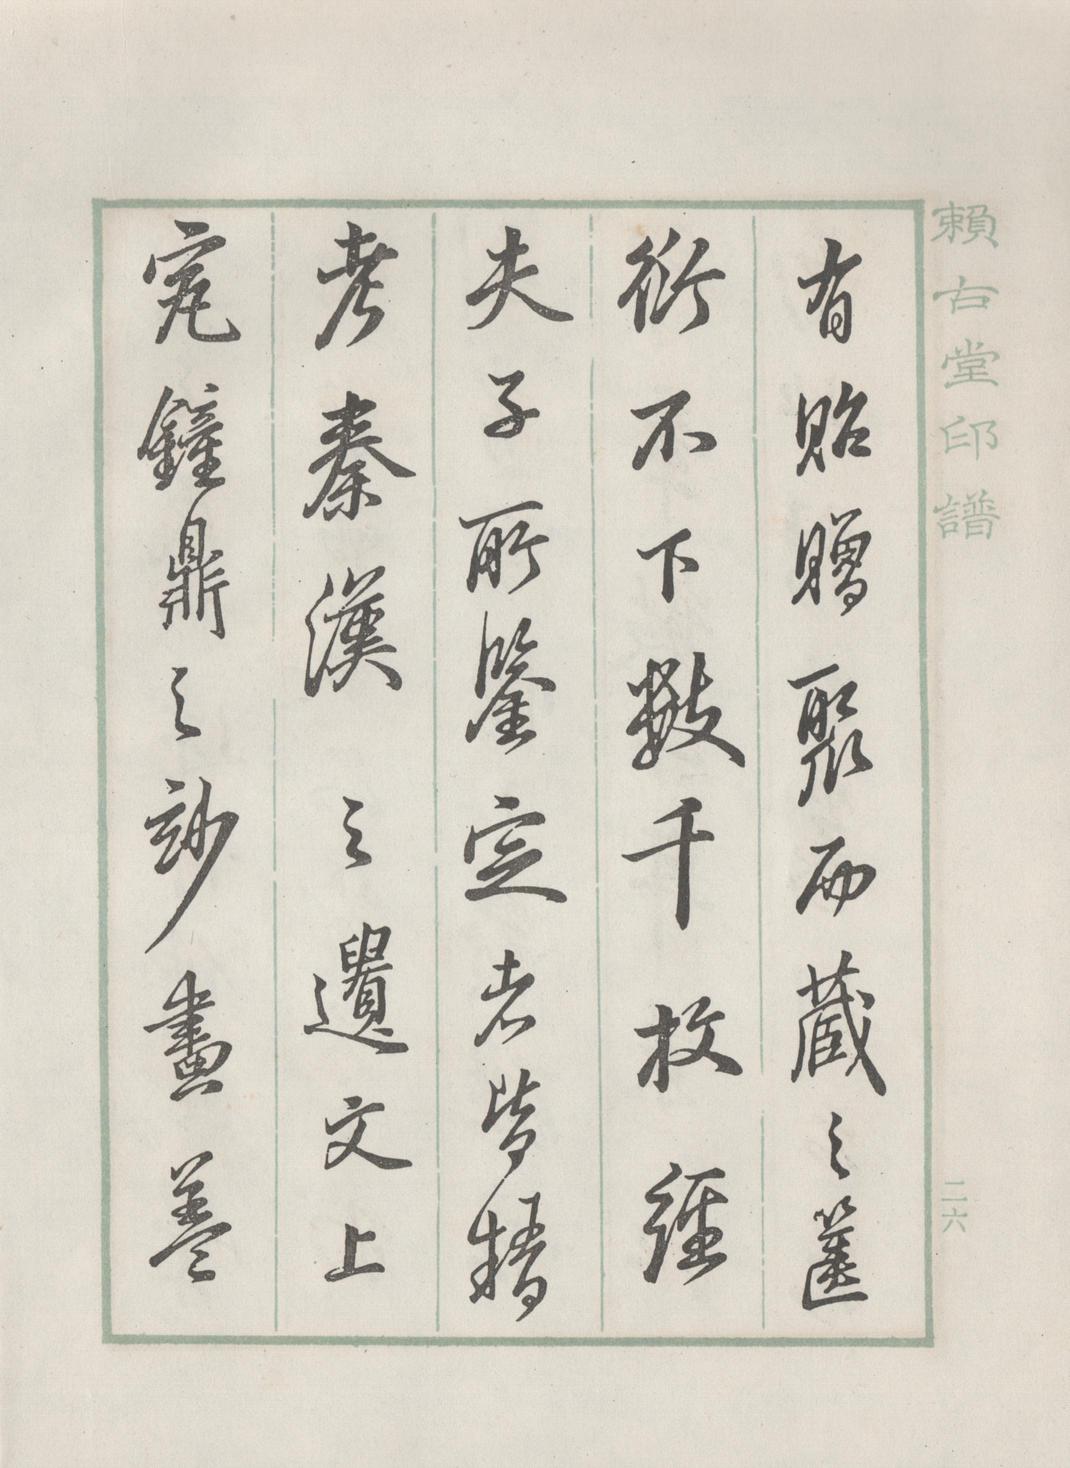 賴古堂印譜
二六
有貽贈聚而藏之篋
衍不下數千枚經
夫子所鑒定者皆精
考秦漢之遺文上
究鐘鼎之妙畫蓋